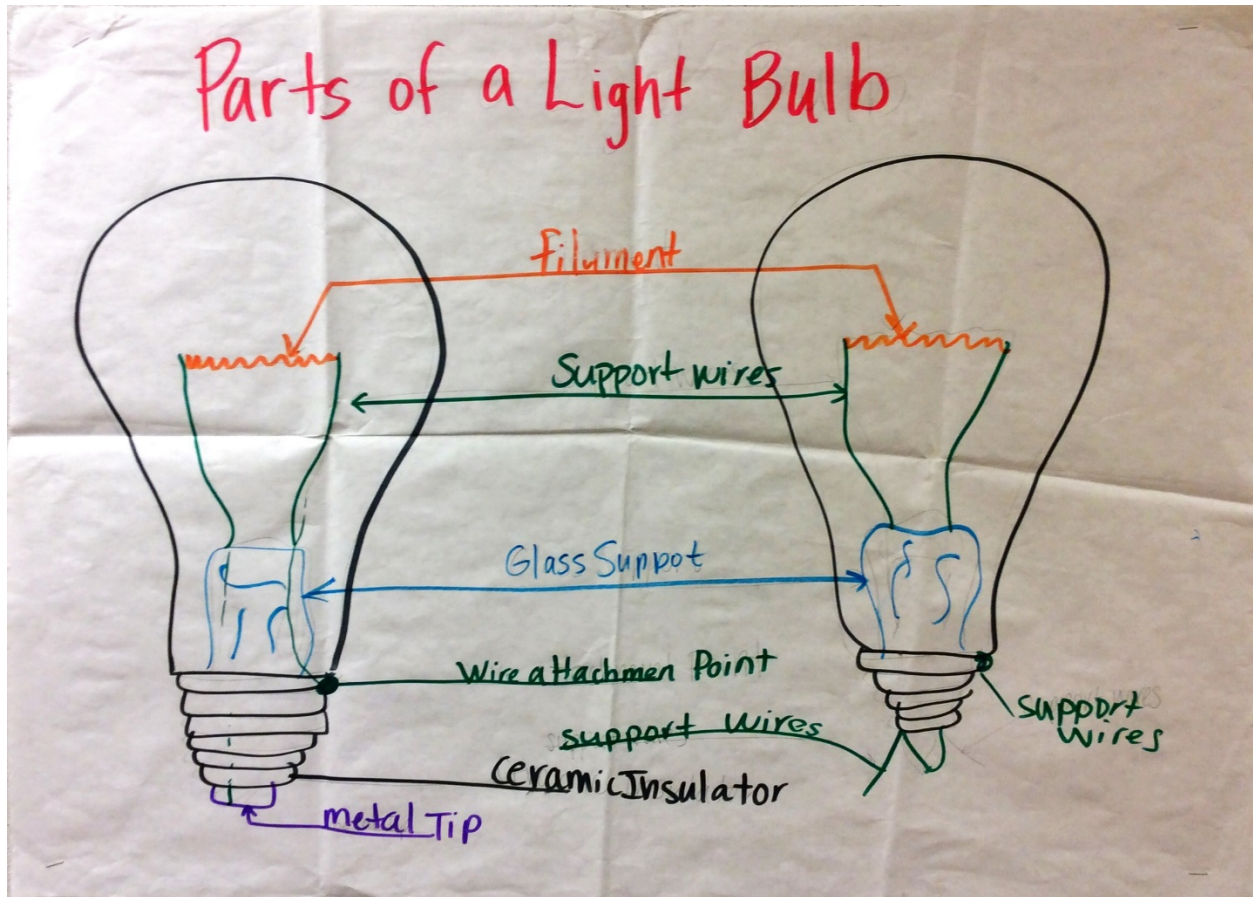 Parts of a Light Bulb
filument
Support wires
Glass Suppot
Wire attachmen Point
support wires
support wires
Ceramic Insulator
metal Tip